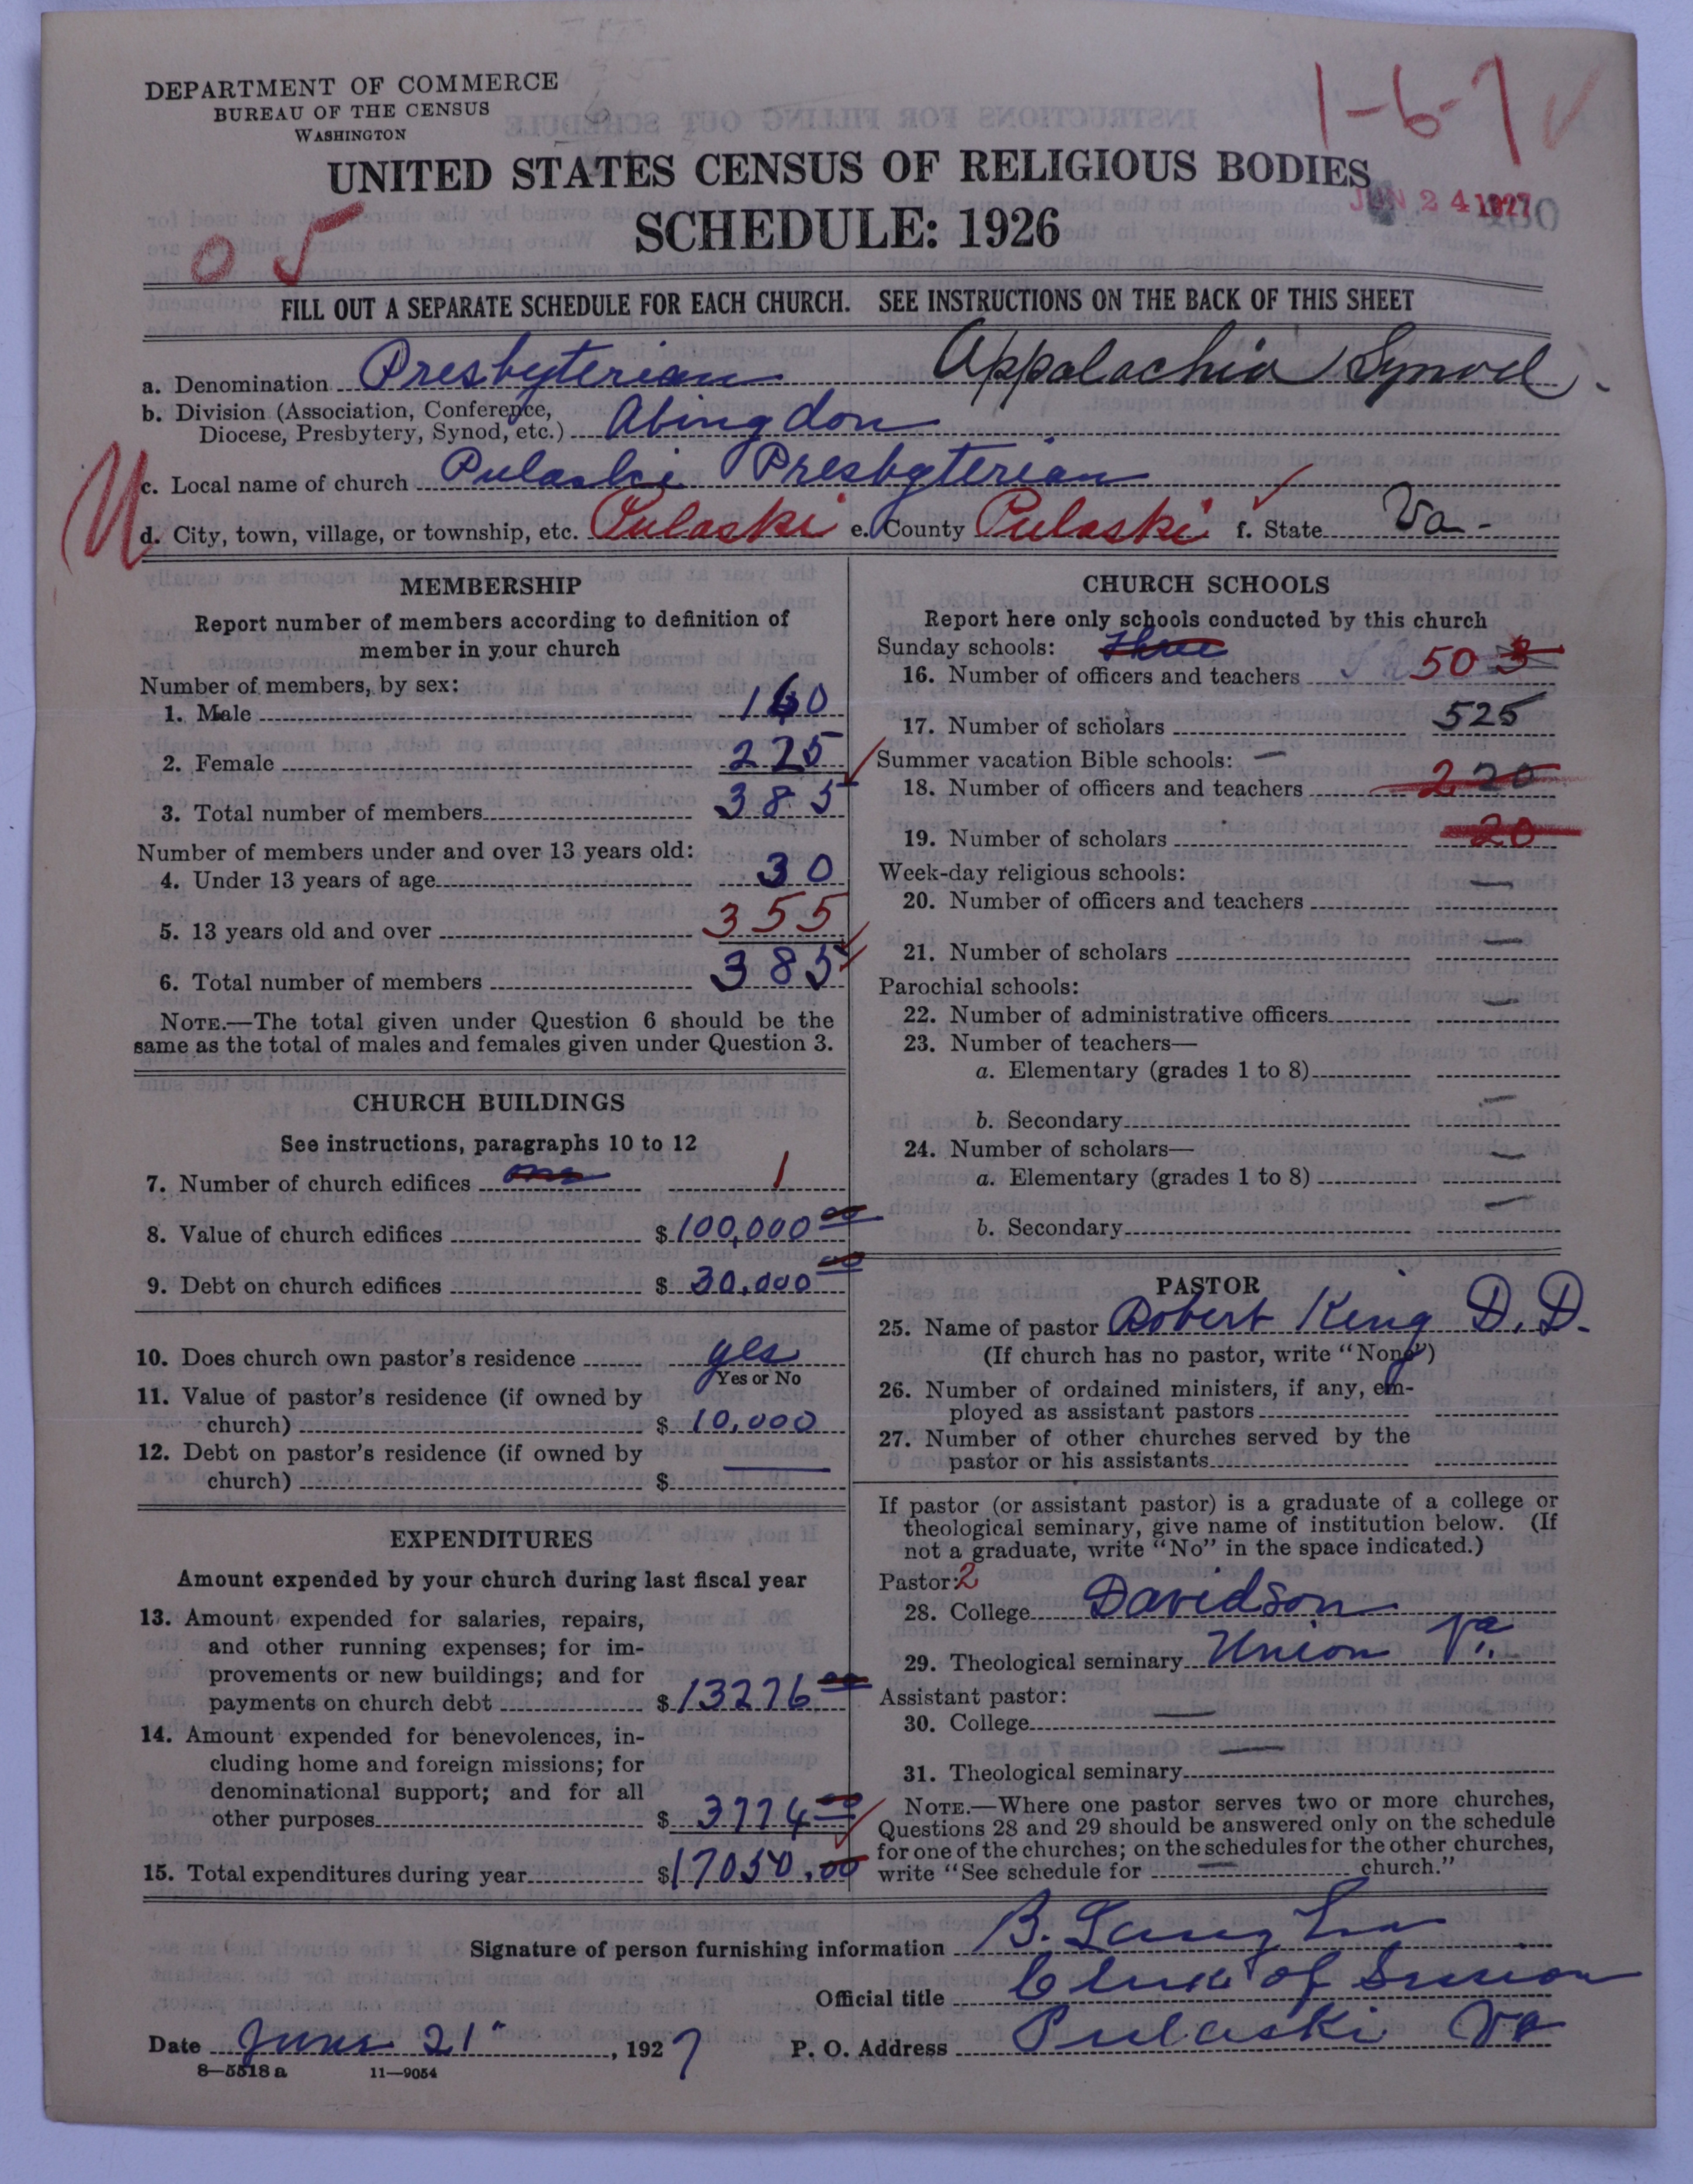 DEPARTMENT OF COMMERCE
BUREAU OF THE CENSUS
WASHINGTON
1-6-7
UNITED STATES CENSUS OF RELIGIOUS BODIES
JUN 24 1927
SCHEDULE: 1926
05
FILL OUT A SEPARATE SCHEDULE FOR EACH CHURCH. SEE INSTRUCTIONS ON THE BACK OF THIS SHEET
a. Denomination Presbyterian Appalachia Synod.
b. Division (Association, Conference,
Diocese, Presbytery, Synod, etc.) Abingdon
c. Local name of church Pulaski Presbyterian
d. City, town, village, or township, etc. Pulaski e. County Pulaski f. State Va.
MEMBERSHIP
Report number of members according to definition of
member in your church
Number of members, by sex:
1. Male 160
2. Female 225
3. Total number of members 385
Number of members under and over 13 years old:
4. Under 13 years of age 30
5. 13 years old and over 355
6. Total number of members 385
NOTE.—The total given under Question 6 should be the
same as the total of males and females given under Question 3.
CHURCH BUILDINGS
See instructions, paragraphs 10 to 12
7. Number of church edifices one 1
8. Value of church edifices $ 100,000 00
9. Debt on church edifices $ 30,000 00
10. Does church own pastor's residence yes
Yes or No
11. Value of pastor's residence (if owned by
church) $ 10,000
12. Debt on pastor's residence (if owned by
church) $ —
EXPENDITURES
Amount expended by your church during last fiscal year
13. Amount expended for salaries, repairs,
and other running expenses; for im-
provements or new buildings; and for
payments on church debt $ 13276 00
14. Amount expended for benevolences, in-
cluding home and foreign missions; for
denominational support; and for all
other purposes $ 3774 00
15. Total expenditures during year $ 17050.00
CHURCH SCHOOLS
Report here only schools conducted by this church
Sunday schools: three
16. Number of officers and teachers 50 3
17. Number of scholars 525
Summer vacation Bible schools: —
18. Number of officers and teachers 220
19. Number of scholars 20
Week-day religious schools:
20. Number of officers and teachers —
21. Number of scholars —
Parochial schools:
22. Number of administrative officers —
23. Number of teachers—
a. Elementary (grades 1 to 8)
b. Secondary —
24. Number of scholars—
a. Elementary (grades 1 to 8) —
b. Secondary —
PASTOR
25. Name of pastor Robert King D.D.
(If church has no pastor, write "None")
26. Number of ordained ministers, if any, em-
ployed as assistant pastors
27. Number of other churches served by the
pastor or his assistants
If pastor (or assistant pastor) is a graduate of a college or
theological seminary, give name of institution below. (If
not a graduate, write "No" in the space indicated.)
Pastor: 2
28. College Davidson
29. Theological seminary Union Va.
Assistant pastor:
30. College —
31. Theological seminary —
NOTE.—Where one pastor serves two or more churches,
Questions 28 and 29 should be answered only on the schedule
for one of the churches; on the schedules for the other churches,
write "See schedule for — church."
Signature of person furnishing information B.
Official title Clerk of Session
Date June 21", 1927 P. O. Address Pulaski Va
8—5518 a 11—9054